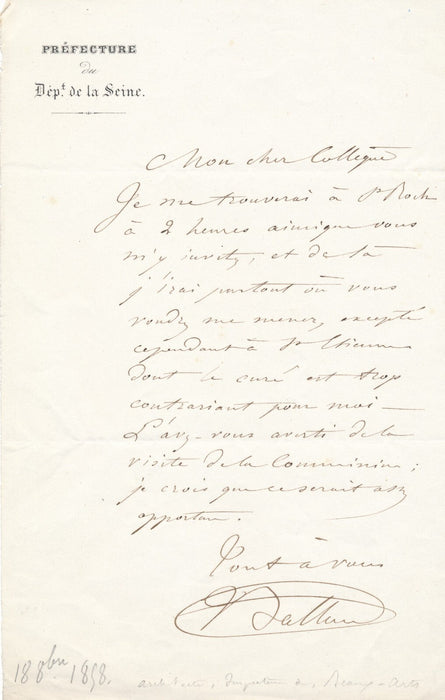 PRÉFECTURE
du
Dép.t de la Seine.
Mon cher Collègue
Je me trouverai à St Roch
à 2 heures ainsique vous
m'y invitez, et de là
j'irai partout où vous
voudrez me mener, excepté
cependant à St Etienne
dont le curé est trop
contrariant pour moi —
L'avez-vous averti de la
visite de la Commission;
je crois que ce serait assez
opportun.
Tout à vous
VBaltard
18 8bre 1858.
architecte, Inspecteur des Beaux-Arts